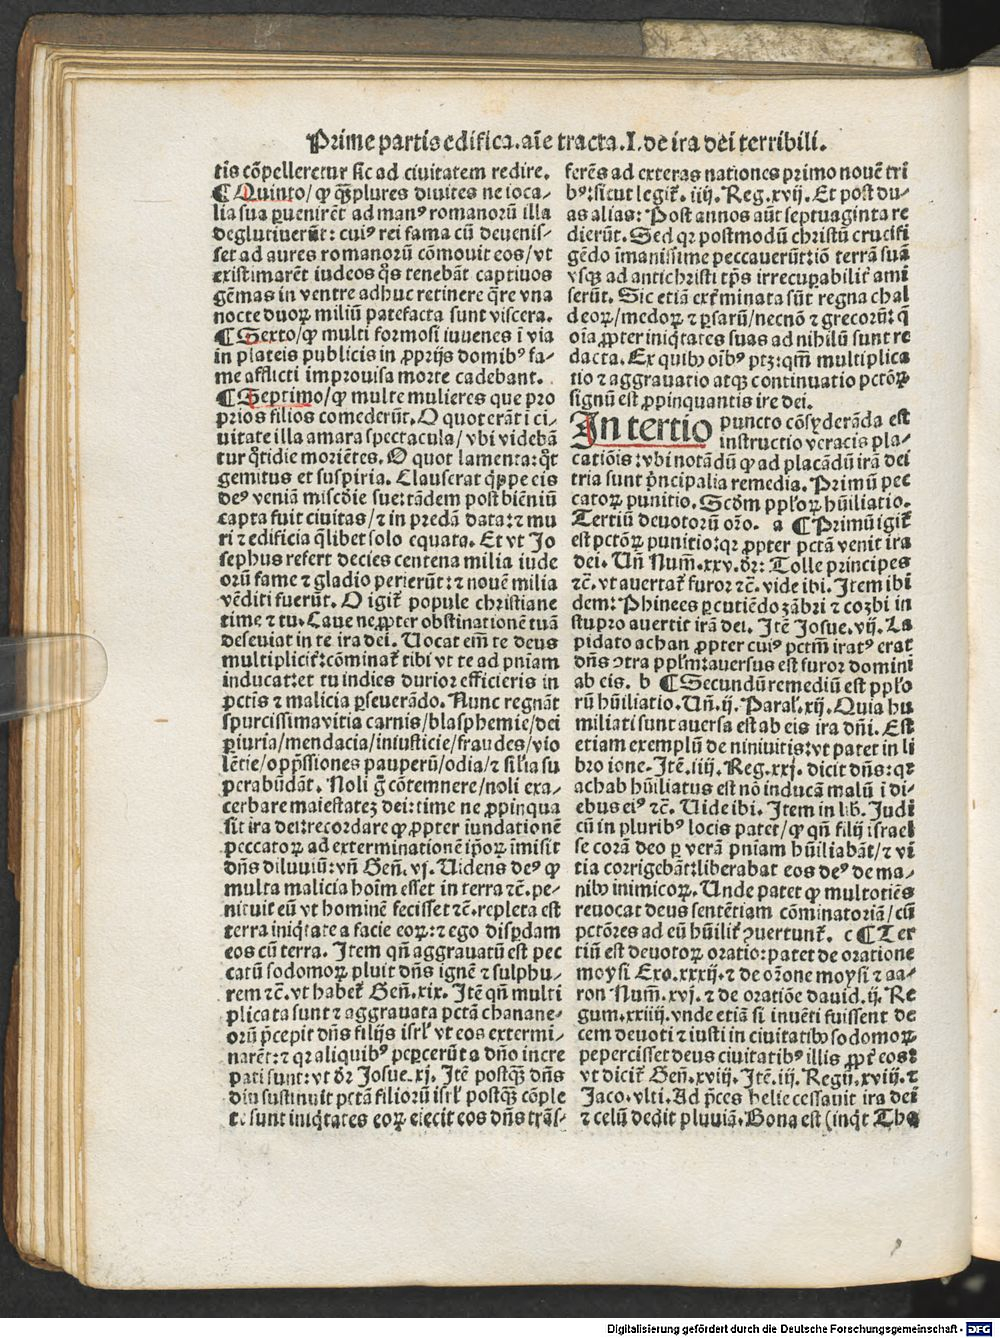 Prime partis edifica. aīe tracta. I. de ira dei terribili.
tis cōpelleretur sic ad ciuitatem redire.
¶ Quinto/ ꝙ q̄ꝫplures diuites ne ioca-
lia sua ꝑuenirēt ad manꝰ romanorū illa
deglutiuerūt: cuiꝰ rei fama cū deuenis-
set ad aures romanorū cōmouit eos/ vt
existimarēt iudeos q̄s tenebāt captiuos
gēmas in ventre adhuc retinere q̄re vna
nocte duoꝝ miliū patefacta sunt viscera.
¶ Sexto/ ꝙ multi formosi iuuenes ī via
in plateis publicis in ꝓprijs domibꝰ fa-
me afflicti improuisa morte cadebant.
¶ Septimo/ ꝙ multe mulieres que pro
prios filios comederūt. O quot erāt ī ci-
uitate illa amara spectacula/ vbi videbā
tur q̄tidie moriētes. O quot lamenta: q̄t
gemitus et suspiria. Clauserat q̄ppe eis
deꝰ veniā miscd̄ie sue: tādem post bieniū
capta fuit ciuitas/ ⁊ in predā data: ⁊ mu
ri ⁊ edificia q̄libet solo equata. Et vt Jo
sephus refert decies centena milia iude
orū fame ⁊ gladio perierūt: ⁊ nouē milia
vēditi fuerūt. O igit᷑ popule christiane
time ⁊ tu. Caue ne ꝓpter obstinationē tuā
deseuiat in te ira dei. Uocat em̄ te deus
multiplicit᷑: cōminat᷑ tibi vt te ad pn̄iam
inducat: et tu indies durior efficieris in
pctīs ⁊ malicia ꝑseuerādo. Nunc regnāt
spurcissima vitia carnis/ blasphemie/ dei
ꝑiuria/ mendacia/ iniusticie/ fraudes/ vio
lētie/ opp̄ssiones pauperū/ odia/ ⁊ sil̄ia su
perabūdāt. Noli g̊ cōtemnere/ noli exa-
cerbare maiestateꝫ dei: time ne ꝓpinqua
sit ira dei: recordare ꝙ ꝓpter iundationē
peccatoꝝ ad exterminationē ip̄oꝝ īmisit
dn̄s diluuiū: vn̄ Gen̄. vj. Uidens deꝰ ꝙ
multa malicia hoīm esset in terra ⁊c̄. pe-
nituit eū vt hominē fecisset ⁊c̄. repleta est
terra iniq̄tate a facie eoꝝ: ⁊ ego disꝑdam
eos cū terra. Item qn̄ aggrauatū est pec
catū sodomoꝝ pluit dn̄s ignē ⁊ sulphu-
rem ⁊c̄. vt habet᷑ Gen̄. xix. Itē qn̄ multi
plicata sunt ⁊ aggrauata pctā chanane-
orū p̄cepit dn̄s filijs isrl̓ vt eos extermi-
narēt: ⁊ qꝛ aliquibꝰ peꝑcerūt a dn̄o incre
pati sunt: vt dr̄ Josue. xj. Itē postq̄ꝫ dn̄s
diu sustinuit pctā filiorū isrl̓ postq̄ꝫ cōple
te sunt iniq̄tates eoꝝ eiecit eos dn̄s trās-
ferēs ad exteras nationes primo nouē tri
bꝰ: sicut legit᷑. iiij. Reg. xvij. Et post du-
as alias: Post annos aūt septuaginta re
dierūt. Sed qꝛ postmodū christū crucifi
gēdo imanissime peccauerūt: iō terrā suā
vsqꝫ ad antichristi tp̄s irrecuꝑabilit᷑ ami
serūt. Sic etiā ext᷑minata sūt regna chal
deoꝝ/ medoꝝ ⁊ ꝑsarū/ necnō ⁊ grecorū: q̄
oīa ꝓpter iniq̄tates suas ad nihilū sunt re
dacta. Ex quibꝰ oībꝰ ptꝫ: qm̄ multiplica
tio ⁊ aggrauatio atqꝫ continuatio pctōꝝ
signū est ꝓpinquantis ire dei.
In tertio puncto cōsyderāda est
instructio veracis pla-
catiōis: vbi notādū ꝙ ad placādū irā dei
tria sunt p̄ncipalia remedia. Primū pec
catoꝝ punitio. Scd̄m ppl̓oꝝ hūiliatio.
Tertiū deuotorū or̄o. a ¶ Primū igit᷑
est pctōꝝ punitio: qꝛ ꝓpter pctā venit ira
dei. Un̄ Num̄. xxv. dr̄: Tolle principes
⁊c̄. vt auertat᷑ furor ⁊c̄. vide ibi. Item ibi
dem: Phinees ꝑcutiēdo zābri ⁊ cozbi in
stupro auertit irā dei. Itē Josue. vij. La
pidato achan ꝓpter cuiꝰ pctm̄ iratꝰ erat
dn̄s ↄtra ppl̓m: auersus est furor domini
ab eis. b ¶ Secundū remediū est ppl̓o
rū hūiliatio. Un̄. ij. Paral̓. xij. Quia hu
miliati sunt auersa est ab eis ira dn̄i. Est
etiam exemplū de niniuitis: vt patet in li
bro ione. Itē. iiij. Reg. xxj. dicit dn̄s: qꝛ
achab hūiliatus est nō inducā malū ī di-
ebus eiꝰ ⁊c̄. Uide ibi. Item in lib. Judī
cū in pluribꝰ locis patet/ ꝙ qn̄ filij israel
se corā deo ꝑ verā pn̄iam hūiliabāt/ ⁊ vi
tia corrigebāt: liberabat eos deꝰ de ma-
nibꝰ inimicoꝝ. Unde patet ꝙ multotiēs
reuocat deus sentētiam cōminatoriā/ cū
pctōres ad eū hūilit᷑ ↄuertunt᷑. c ¶ Ter
tiū est deuotoꝝ oratio: patet de oratione
moysi Exo. xxxij. ⁊ de or̄one moysi ⁊ aa-
ron Num̄. xvj. ⁊ de oratiōe dauid. ij. Re
gum. xxiiij. vnde etiā si inuēti fuissent de
cem deuoti ⁊ iusti in ciuitatibꝰ sodomoꝝ
pepercisset deus ciuitatibꝰ illis ꝓpt᷑ eos:
vt dicit᷑ Gen̄. xviij. Itē. iij. Regū. xviij. ⁊
Jaco. vlti. Ad p̄ces helie cessauit ira dei
⁊ celū dedit pluuiā. Bona est (inq̄t Tho
Digitalisierung gefördert durch die Deutsche Forschungsgemeinschaft - DFG